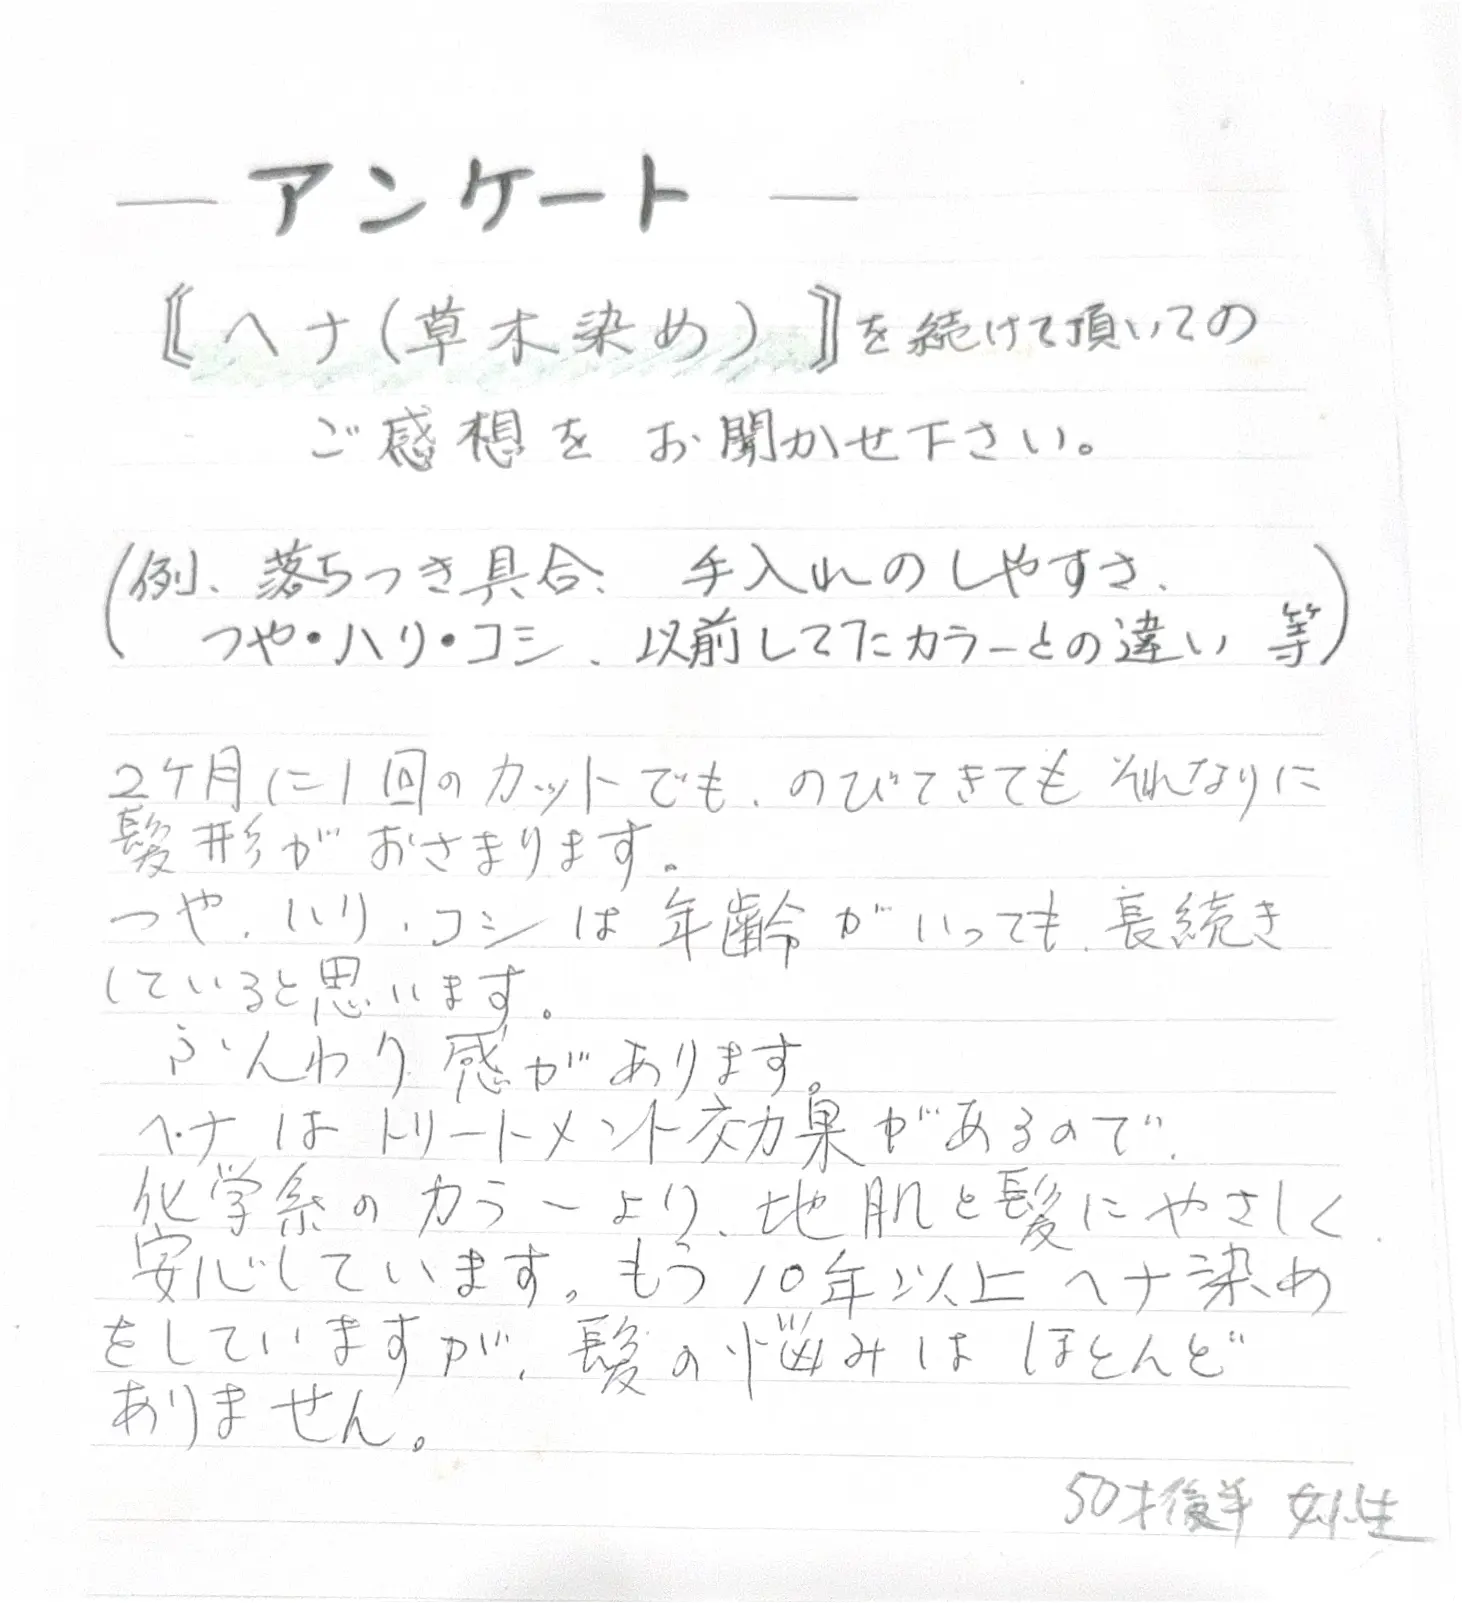 — アンケート —
《ヘナ(草木染め)》を続けて頂いての
ご感想をお聞かせ下さい。
(例、落ちつき具合、手入れのしやすさ、
つや・ハリ・コシ、以前してたカラーとの違い 等)
2ケ月に1回のカットでも、のびてきてもそれなりに
髪形がおさまります。
つや、ハリ、コシは年齢がいっても、長続き
していると思います。
ふんわり感があります。
ヘナはトリートメント効果があるので、
化学系のカラーより、地肌と髪にやさしく、
安心しています。もう10年以上ヘナ染め
をしていますが、髪の悩みはほとんど
ありません。
50才後半 女性